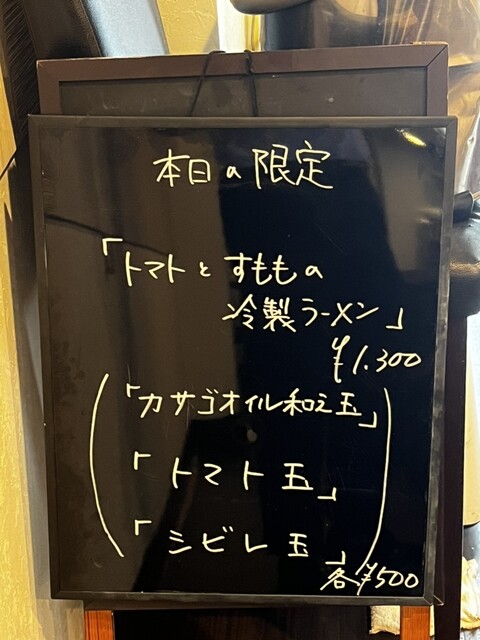 本日の限定
「トマトとすももの
冷製ラーメン」
¥1.300
(「カサゴオイル和え玉」
「トマト玉」
「シビレ玉」)
各¥500